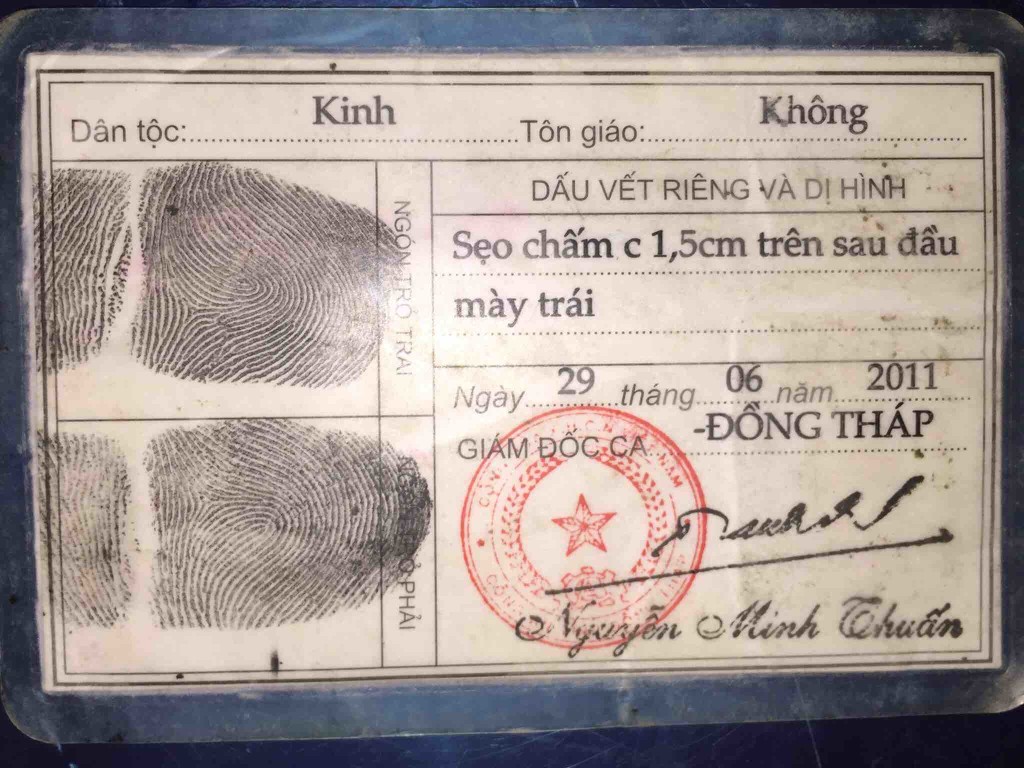 Dân tộc: Kinh Tôn giáo: Không
NGÓN TRỎ TRÁI
DẤU VẾT RIÊNG VÀ DỊ HÌNH
Sẹo chấm c 1,5cm trên sau đầu
mày trái
Ngày 29 tháng 06 năm 2011
GIÁM ĐỐC CA -ĐỒNG THÁP
PHẢI
Nguyễn Minh Thuấn